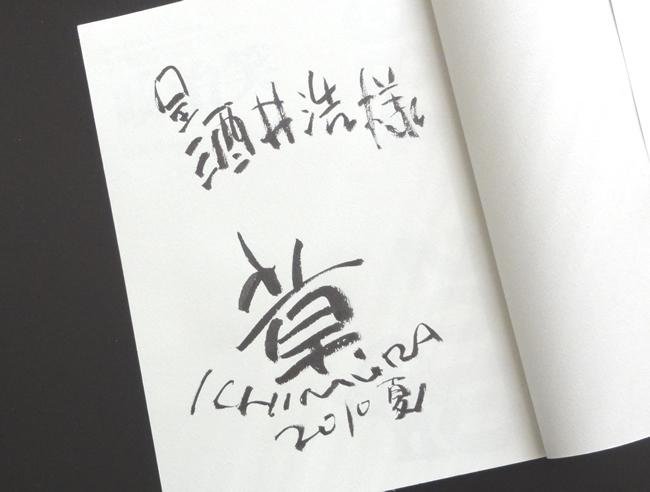 呈
酒井浩様
ICHIMURA
2010夏